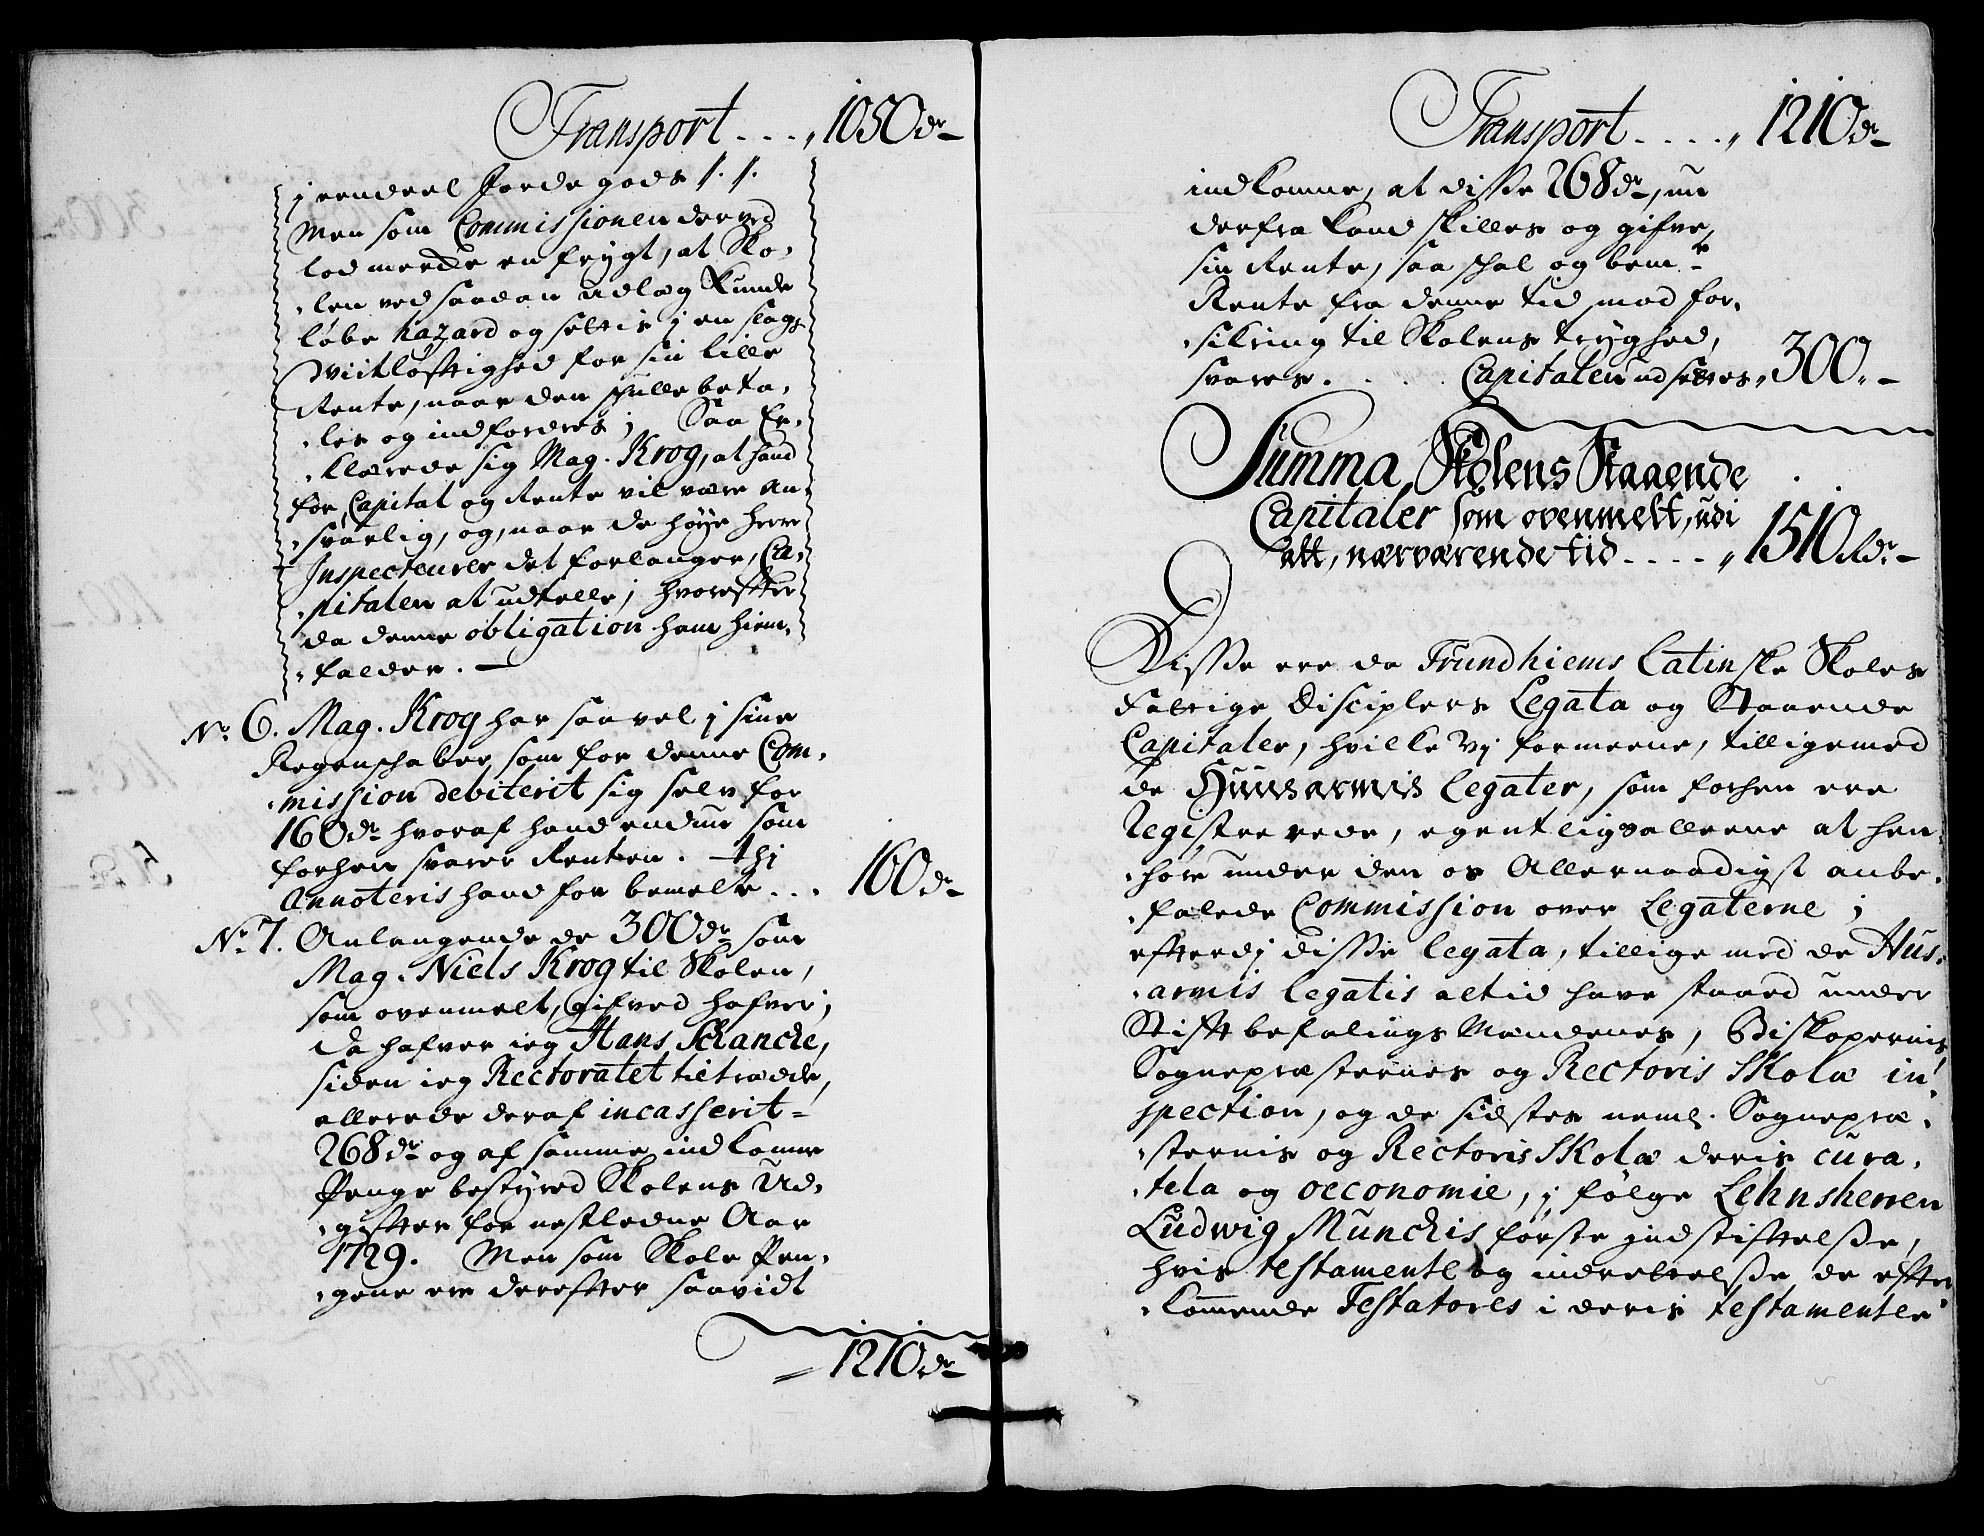 Transport . . . „ 1050 dr
j eendeel Jordegods ⁒ ⁒
Men som Commissionen derved
lod merke en frygt, at Sko,
,len ved saadan udlæg kunde
løbe hazard og settis j en slags
Vidtløftighed for sin lille
Rente, naar den skulle beta,
,les og indfordres; Saa Er,
,klærede sig Mag. Krog, at hand
for Capital og Rente vil være An,
,svarlig, og, naar de høye Herrer
Inspecteurer det forlanger, Ca,
,pitalen at udtelle; hvorefter
da denne obligation ham hiem,
,falder. —
No. 6. Mag. Krog har saavel j sine
Regenschaber, som for denne Com,
,mission debiterit sig selv for
160 dr hvoraf hand endnu som
forhen svarer Renten. thj
Annoteris hand for bemelte . . . 160 dr
No. 7. Anlangende de 300 dr som
Mag. Niels Krog til Skolen,
som ovenmelt, gifved hafver;
da hafver ieg Hans Schanche,
siden ieg Rectoratet tiltrædde,
allerede deraf incasserit
268 dr og af samme indkomne
Penge bestyred Skolens Ud,
,gifter for nestledne Aar
1729. Men som Skole Pen,
,gene ere derefter saavidt
1210 dr
Transport . . . . „ 1210 dr
indkomne, at disse 268 dr, nu
derfra kand skilles og gifve
sin Rente, saa skal og bemte
Rente fra denne tid mod for,
,sikring til Skolens tryghed,
svares. . . . Capitalen udsettes „ 300. —
Summa, Skolens Staaende
Capitaler som ovenmelt, udi
alt, nærværende tid . . . . „ 1510 Rdr
Disse ere da Trundhiems Latinske Skoles
Fattige Disciplers Legata og Staaende
Capitaler, hvilke Vj formeene, tilligemed
de Huusarmis Legater, som forhen ere
Registrerede, egentlig allene at hen,
,høre under den os Allernaadigst anbe,
,falede Commission over Legaterne;
efterdj disse legata, tillige med de Hus,
,armis legatis altid have staaed under
Stiftbefalings Mændenes, Biskopernis,
Sognepræsternes og Rectoris Skolæ in,
spection, og de sidstes neml. Sognepræ,
,sternis og Rectoris Skolæ deris cura,
,tela og oeconomie, j følge Lehnsherren
Ludwig Munchis første Indstiftelse,
hvis testamente og indrettelse de efter
,kommende Testatores i deris testamenter